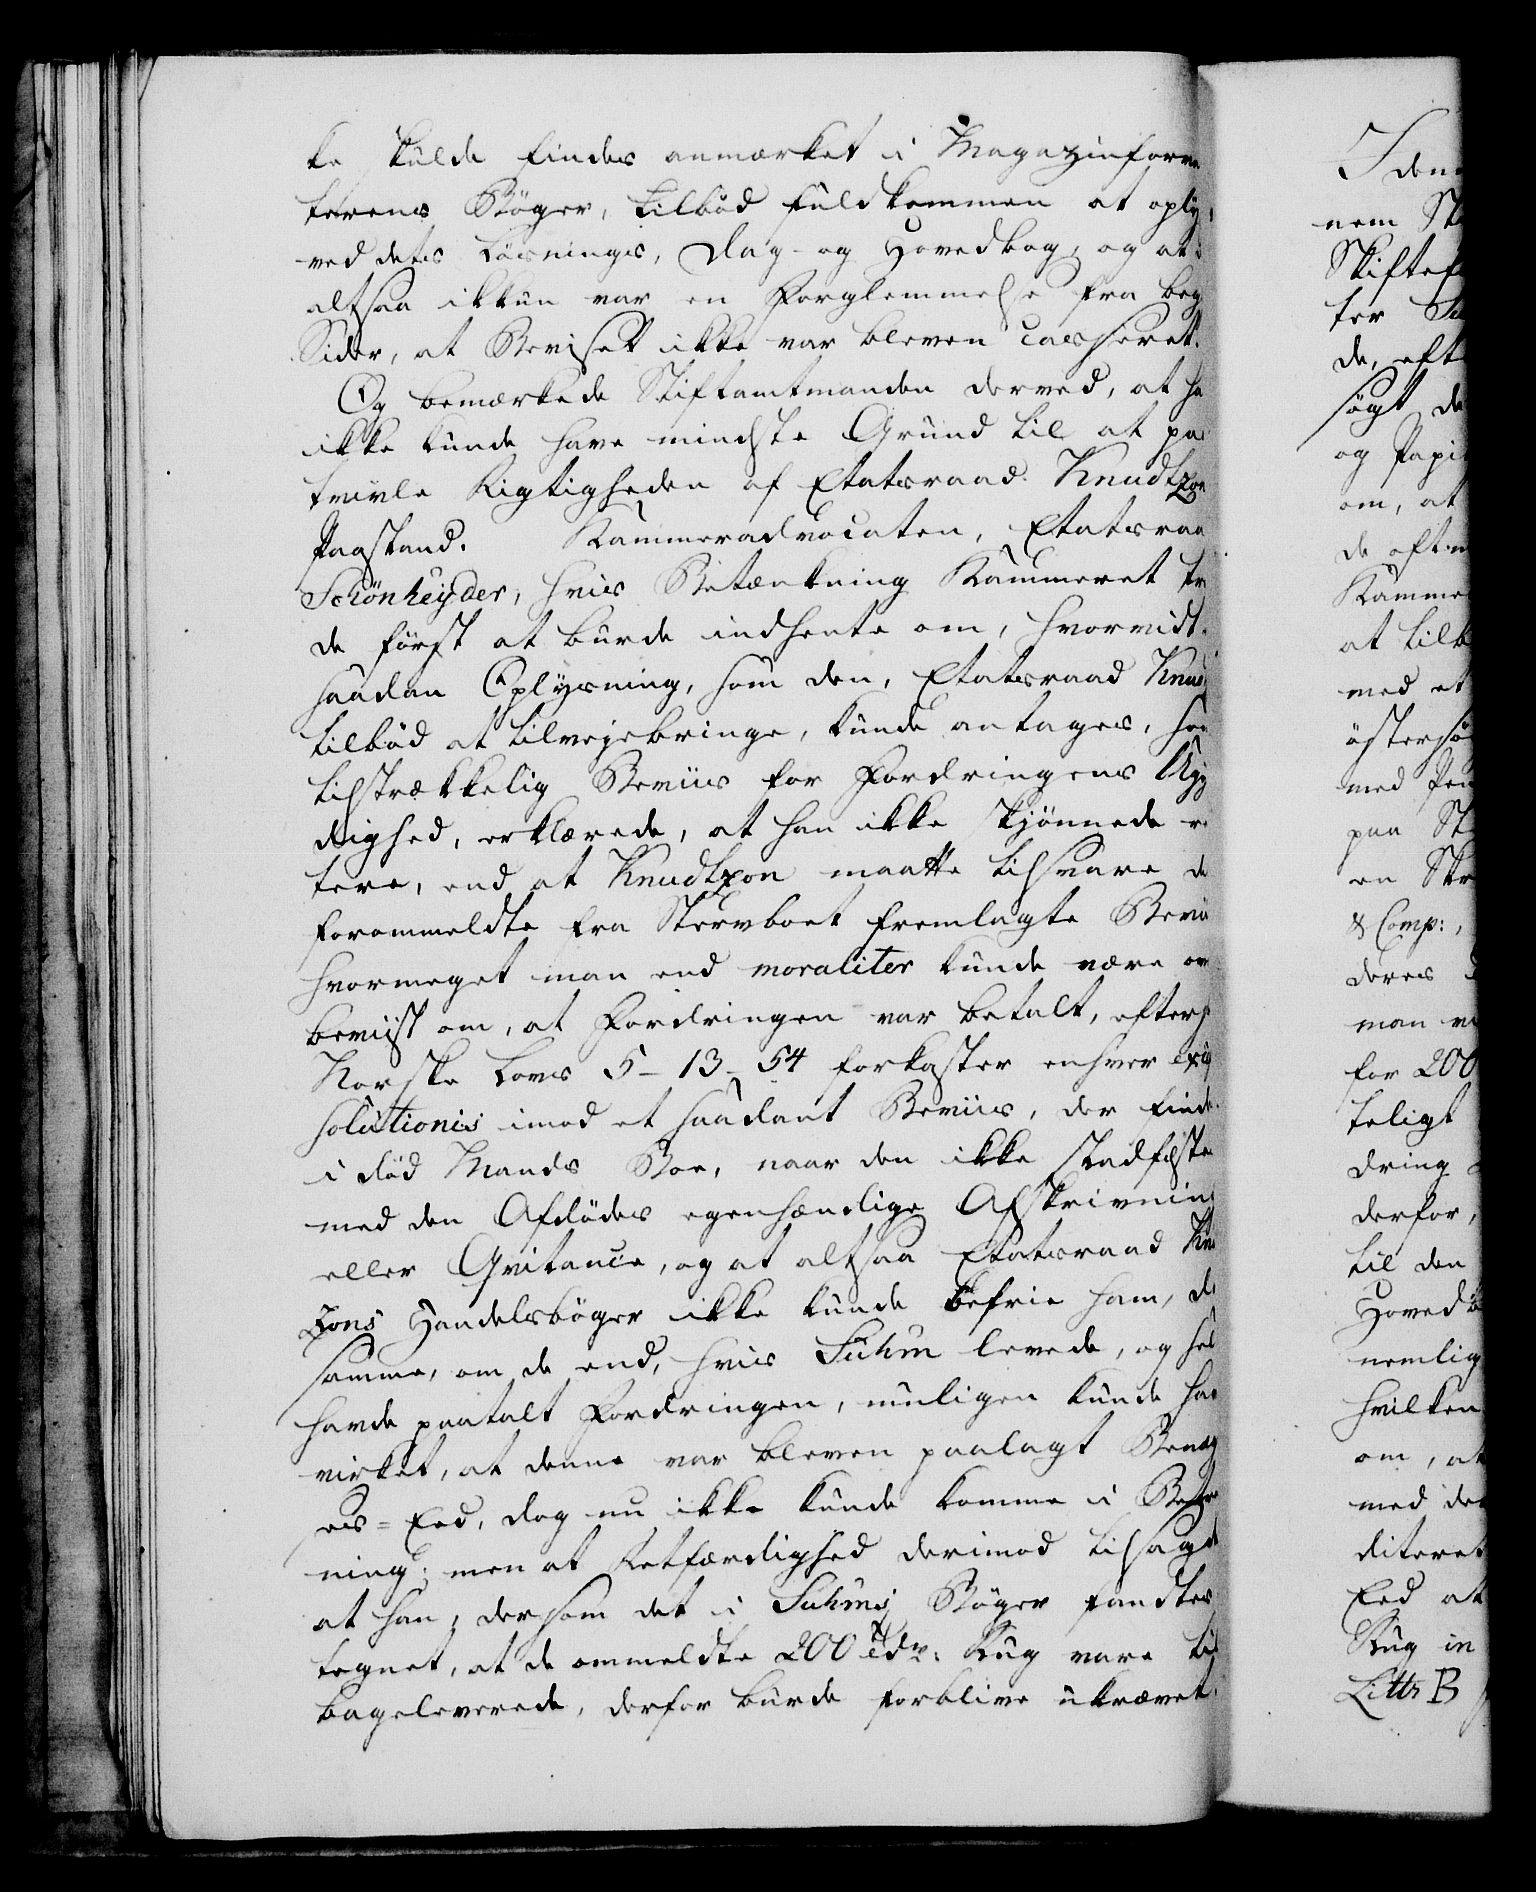 ke skulde findes anmærket i Magazinforva
terens Bøger, tilbød fuldkommen at oply
ved dets Losnings, Dag- og Hovedbog, og at
altsaa ikkun var en Forglemmelse fra beg
Sider, at Beviset ikke var bleven casseret.
Og bemærkede Stiftamtmanden derved, at ha
ikke kunde have mindste Grund til at paa
tvivle Rigtigheden af Etatsraad Knudtzon
Paastand. Kammeradvocaten, Etatsraa
Schönheyder, hvis Betænkning Kammeret tr
de først at burde indhente om, hvorvidt
saadan Oplysning, som den, Etatsraad Knud
tilbød at tilvejebringe, kunde antages, som
tilstrækkelig Beviis for Fordringens Ugy
dighed, erklærede, at han ikke skjønnede re
tere, end at Knudtzon maatte tilsvare de
forommeldte fra Stervboet fremlagte Bevi
hvormeget man end moraliter kunde være ov
beviist om, at Fordringen var betalt, efters
Norske Lovs 5-13-54 forkaster enhver exc
solutionis imod et saadant Beviis, der finde
i død Mands Boe, naar den ikke stadfæste
med den Afdødes egenhændige Afskrivning
eller Qvitance, og at altsaa Etatsraad Knu
tzons Handelsbøger ikke kunde befrie ham, de
samme, om de end, hvis Suhm levede, og sel
havde paatalt Fordringen, muligen kunde hav
virket, at denne var bleven paalagt Benæg
es-Eed, dog nu ikke kunde komme i Betr
ning; men at Retfærdighed derimod tilsagde
at han, dersom det i Suhms Bøger fandtes
tegnet, at de ommeldte 200 Tdr: Rug vare til
bageleverede, derfor burde forblive ukrævet.
I den
nem St
Skiftef
ter Su
de, eft
søgt de
og Papi
om, at
de aft
Kamme
at tilb
med et
østersø
med Pen
paa St
en Skr
& Comp:,
deres
man v
for 200
teligt
dring
derfor,
til den
Hovedb
nemlig
hvilken
om, at
med de
diteret
Eed at
Rug in
Littr B